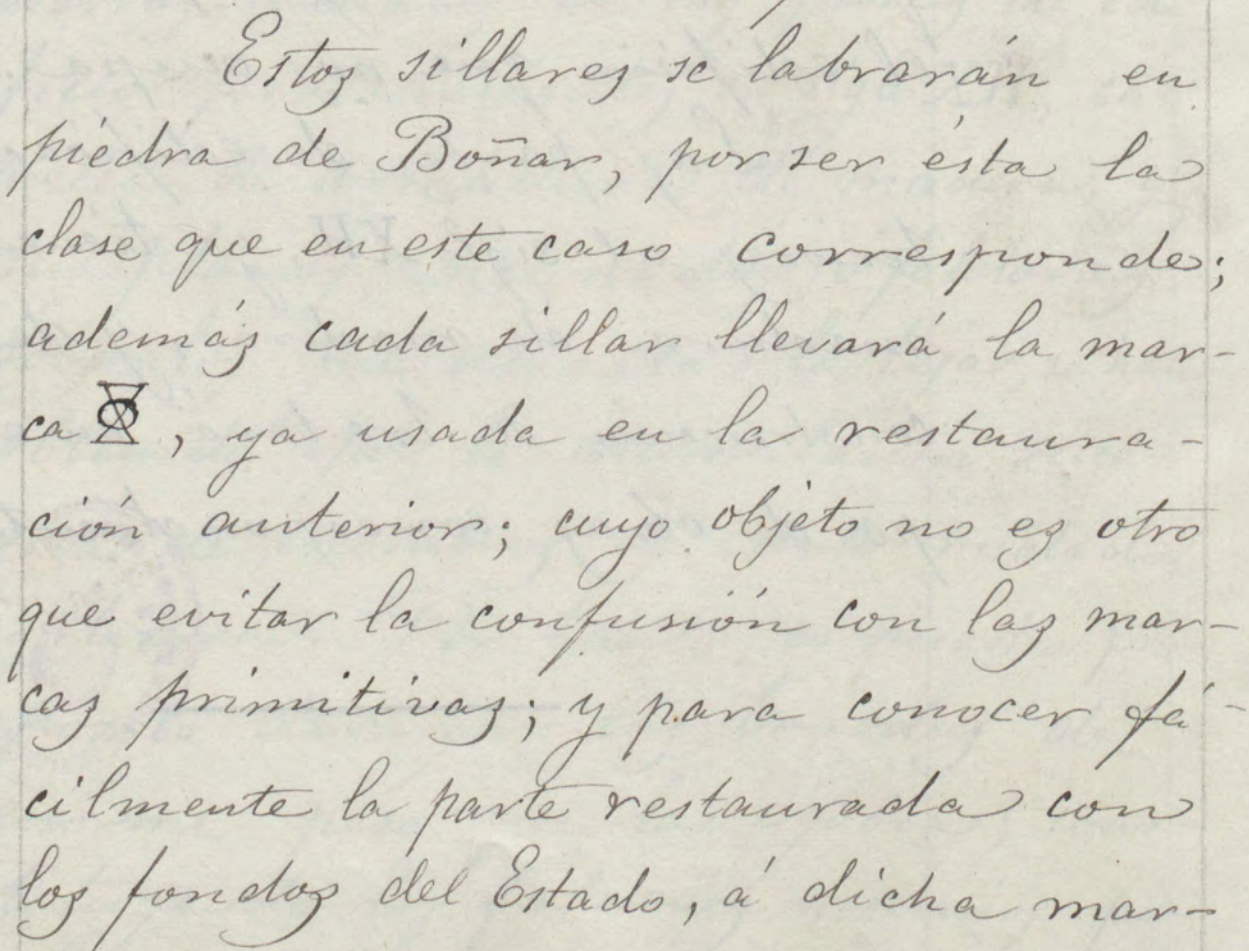 Estos sillares se labrarán en
piedra de Boñar, por ser ésta la
clase que en este caso corresponde;
además cada sillar llevará la mar-
ca , ya usada en la restaura-
ción anterior; cuyo objeto no es otro
que evitar la confusión con las mar-
cas primitivas; y para conocer fá-
cilmente la parte restaurada con
los fondos del Estado, á dicha mar-